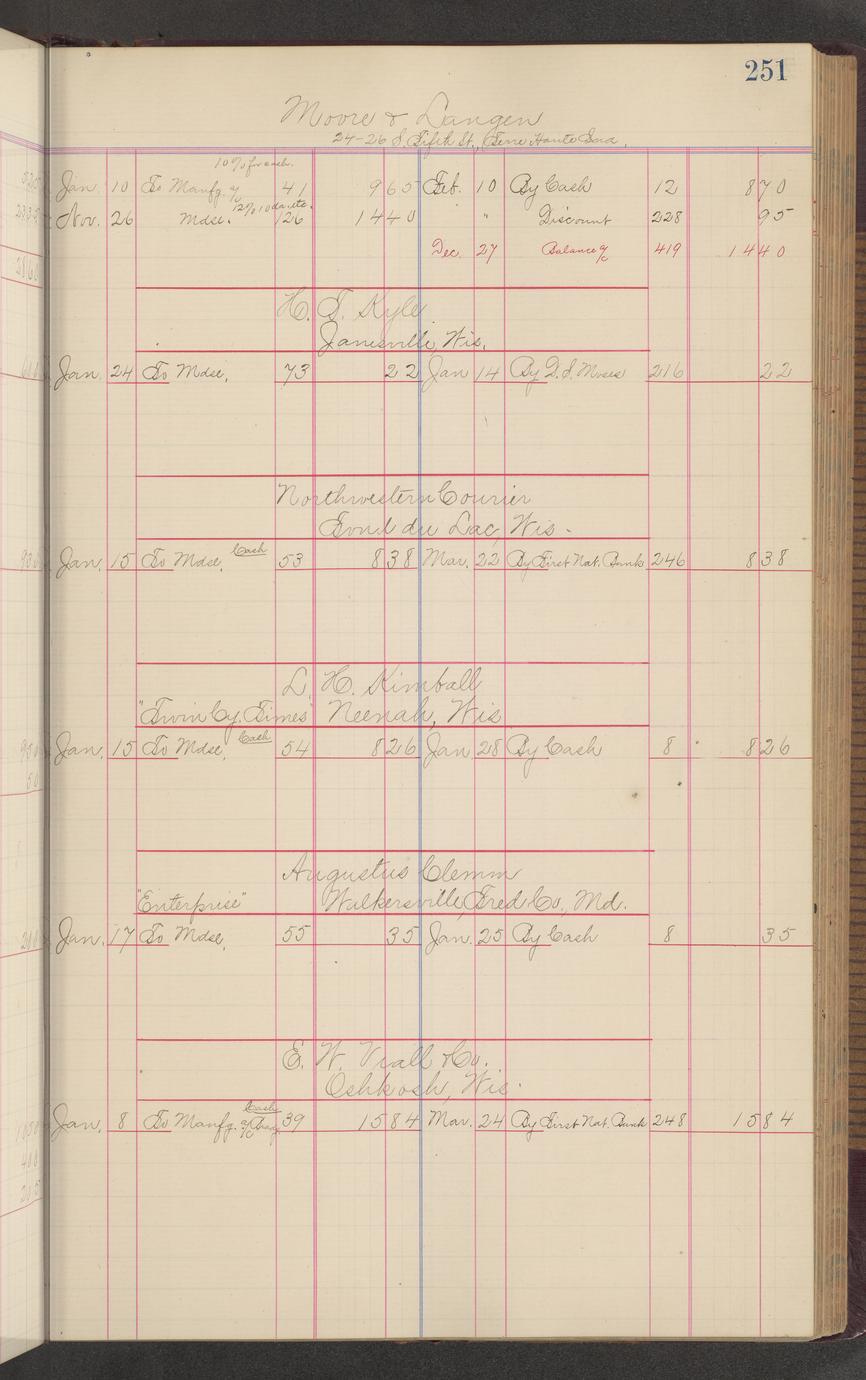 251
Moore & Langen
24-26 S. Fifth St., Terre Haute Ind.
10% for cash.
Jan. 10 To Manfg. a/c 41 9 65 Feb. 10 By Cash 12 8 70
12% 10 da. etc.
Nov. 26 Mdse. 126 14 40 " Discount 228 95
Dec. 27 Balance a/c 419 14 40
H. T. Kyle
Janesville, Wis.
Jan. 24 To Mdse. 73 22 Jan 14 By D. S. Moses 216 22
Northwestern Courier
Fond du Lac, Wis.
Jan. 15 To Mdse. Cash 53 8 38 Mar. 22 By First Nat. Bank 246 8 38
L. H. Kimball
"Twin Cy. Times" Neenah, Wis
Jan. 15 To Mdse. Cash 54 8 26 Jan 28 By Cash 8 8 26
Augustus Clemm
"Enterprise" Walkersville, Fred. Co., Md.
Jan. 17 To Mdse. 55 35 Jan. 25 By Cash 8 35
E. W. Viall & Co.
Oshkosh, Wis.
Cash
Jan. 8 To Manfg. a/c 39 15 84 Mar. 24 By First Nat. Bank 248 15 84